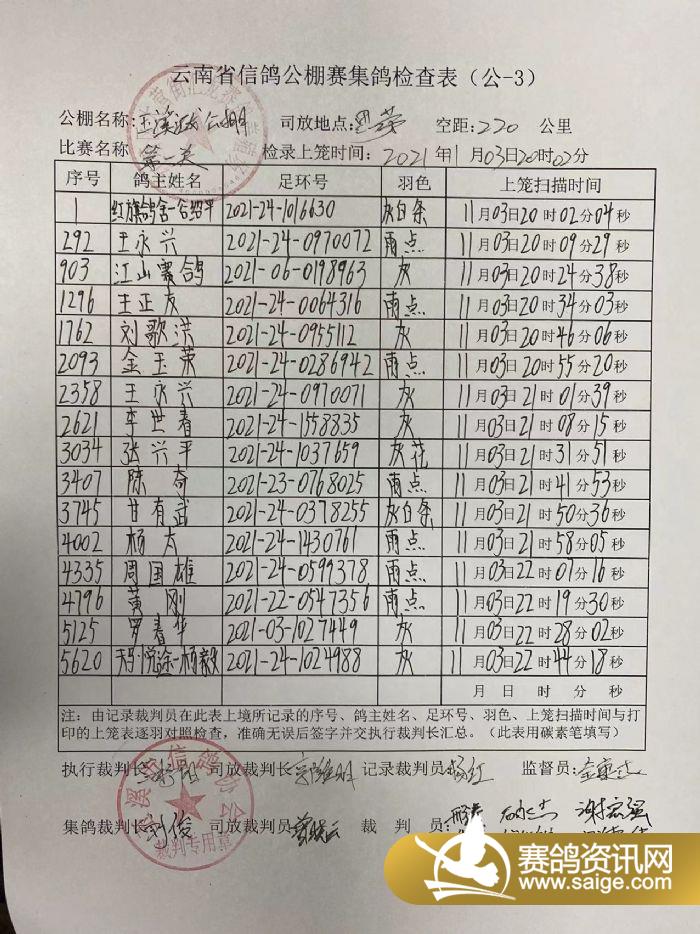 云南省信鸽公棚赛集鸽检查表（公-3）
公棚名称: 玉溪 公棚 司放地点: 空距:220 公里
比赛名称 第一关 检录上笼时间: 2021年11月03日20时02分
序号 鸽主姓名 足环号 羽色 上笼扫描时间
1 红旗鸽舍-合绍平 2021-24-1016630 灰白条 11月03日20时02分04秒
292 王永兴 2021-24-0970072 雨点 11月03日20时09分29秒
903 江山赛鸽 2021-06-0198963 灰 11月03日20时24分38秒
1296 王正友 2021-24-0064316 雨点 11月03日20时34分03秒
1762 刘歌洪 2021-24-0955112 灰 11月03日20时46分06秒
2093 金玉荣 2021-24-0286942 雨点 11月03日20时55分20秒
2358 王永兴 2021-24-0970071 灰 11月03日21时01分39秒
2621 李世春 2021-24-1558835 灰 11月03日21时08分15秒
3034 张兴平 2021-24-1037659 灰花 11月03日21时31分51秒
3407 陈奇 2021-23-0768025 雨点 11月03日21时41分53秒
3745 甘有武 2021-24-0378255 灰白条 11月03日21时50分36秒
4002 杨太 2021-24-1430761 雨点 11月03日21时58分05秒
4335 周国雄 2021-24-0599378 雨点 11月03日22时01分16秒
4796 黄刚 2021-22-0547356 雨点 11月03日22时19分30秒
5125 罗春华 2021-03-1027449 灰 11月03日22时28分02秒
5620 悦途-杨毅 2021-24-1024988 灰 11月03日22时44分18秒
月 日 时 分 秒
注：由记录裁判员在此表上境所记录的序号、鸽主姓名、足环号、羽色、上笼扫描时间与打
印的上笼表逐羽对照检查，准确无误后签字并交执行裁判长汇总。（此表用碳素笔填写）
执行裁判长 司放裁判长 记录裁判员 杨红 监督员:
集鸽裁判长 刘俊 司放裁判员 裁 判 员: 谢宏强
溪市信鸽协会
裁判专用章
赛鸽资讯网
www.saige.com